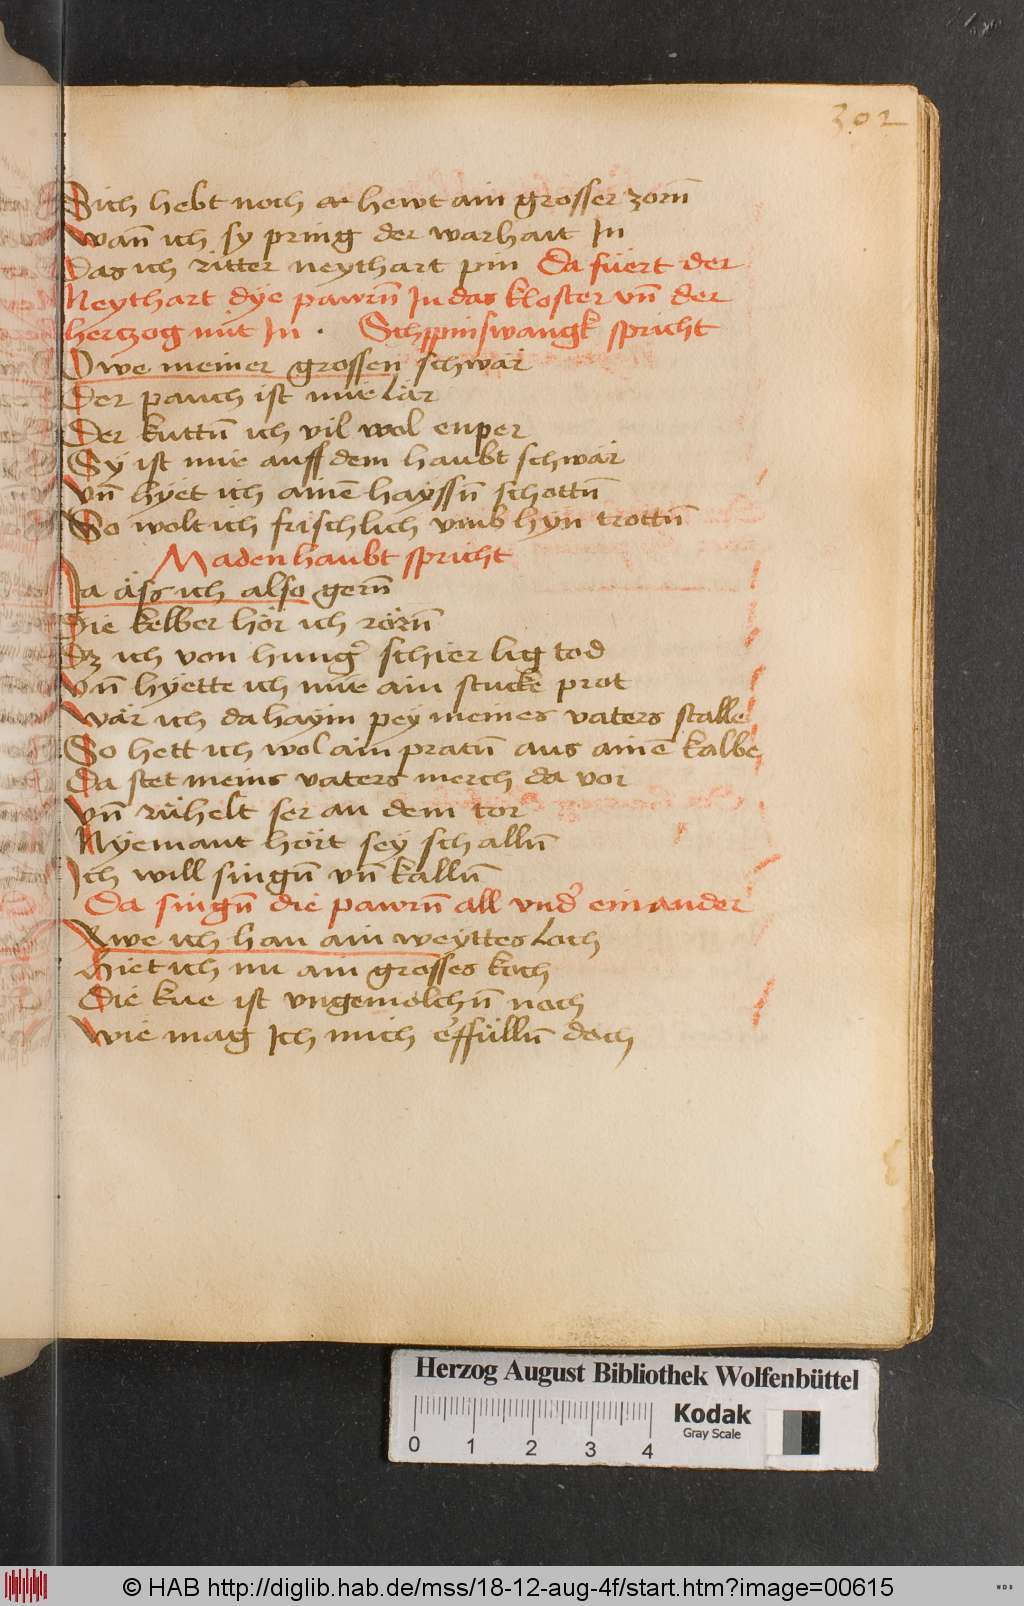 302
Sich hebt noch hewt ain grosser zorn̄
wan̄ ich sy pring der warhait In
Das ich ritter neythart pin Da füert der
Neythart dÿe pawrn̄ In das kloster vn̄ der
hertzog mit In . Schppinswangk spricht
Owe meiner grossen schwär
Der pauch ist mir lär
Der kuttn̄ ich vil wol enper
Sÿ ist mir auff dem haubt schwär
vn̄ hÿet ich ainē hayssn̄ schottn̄
So wolt ich frischlich vmb hyn trottn̄
Madenhaubt spricht
Ja äss ich also gern̄
Die kelber hör ich rörn̄
Dz ich von hung' schier lig tod
vn̄ hÿette ich mir ain stucke prot
wär ich da haÿm peÿ meines vaters stalle
So hett ich wol ain pratn̄ aus ainē kalbe
Da stet meins vaters merch da vor
vn̄ rühelt ser an dem tor
Nÿemant hört seÿ schalln̄
Ich will singn̄ vn̄ kalln̄
Da singn̄ die pawrn̄ all vnd' einander
Awe ich han ain weÿttes loch
Hiet ich nu ain grosses koch
Die kue ist vngemolchn̄ noch
wie mag Ich mich e'ffülln̄ doch
Herzog August Bibliothek Wolfenbüttel
Kodak
Gray Scale
0 1 2 3 4
© HAB http://diglib.hab.de/mss/18-12-aug-4f/start.htm?image=00615